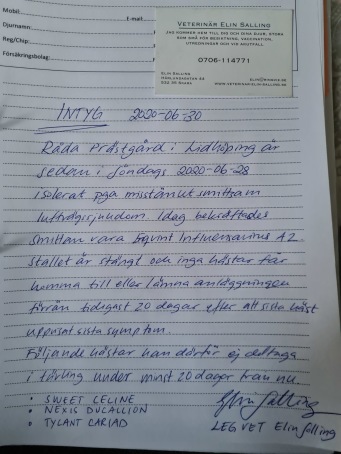 Mobil:
E-mail:
Djurnamn:
Reg/Chip:
Försäkringsbolag:
VETERINÄR ELIN SALLING
JAG KOMMER HEM TILL DIG OCH DINA DJUR, STORA
SOM SMÅ FÖR BESIKTNING, VACCINATION,
UTREDNINGAR OCH VID AKUTFALL
0706-114771
ELIN SALLING
532 SKARA
INTYG 2020-06-30
Råda Prästgård i Lidköping är
sedan i söndags 2020-06-28
isolerat pga misstänkt smittsam
luftvägssjukdom. Idag bekräftades
smittan vara Equint Influensavirus A2.
Stället är stängt och inga hästar får
komma till eller lämna anläggningen
förrän tidigast 20 dagar efter att sista häst
uppvisat sista symptom.
Följande hästar kan därför ej deltaga
i tävling under minst 20 dagar från nu.
• SWEET CELINE
• NEXIS DUCALLION
• TYLANT CARIAD
Elin Salling
LEG VET Elin Salling